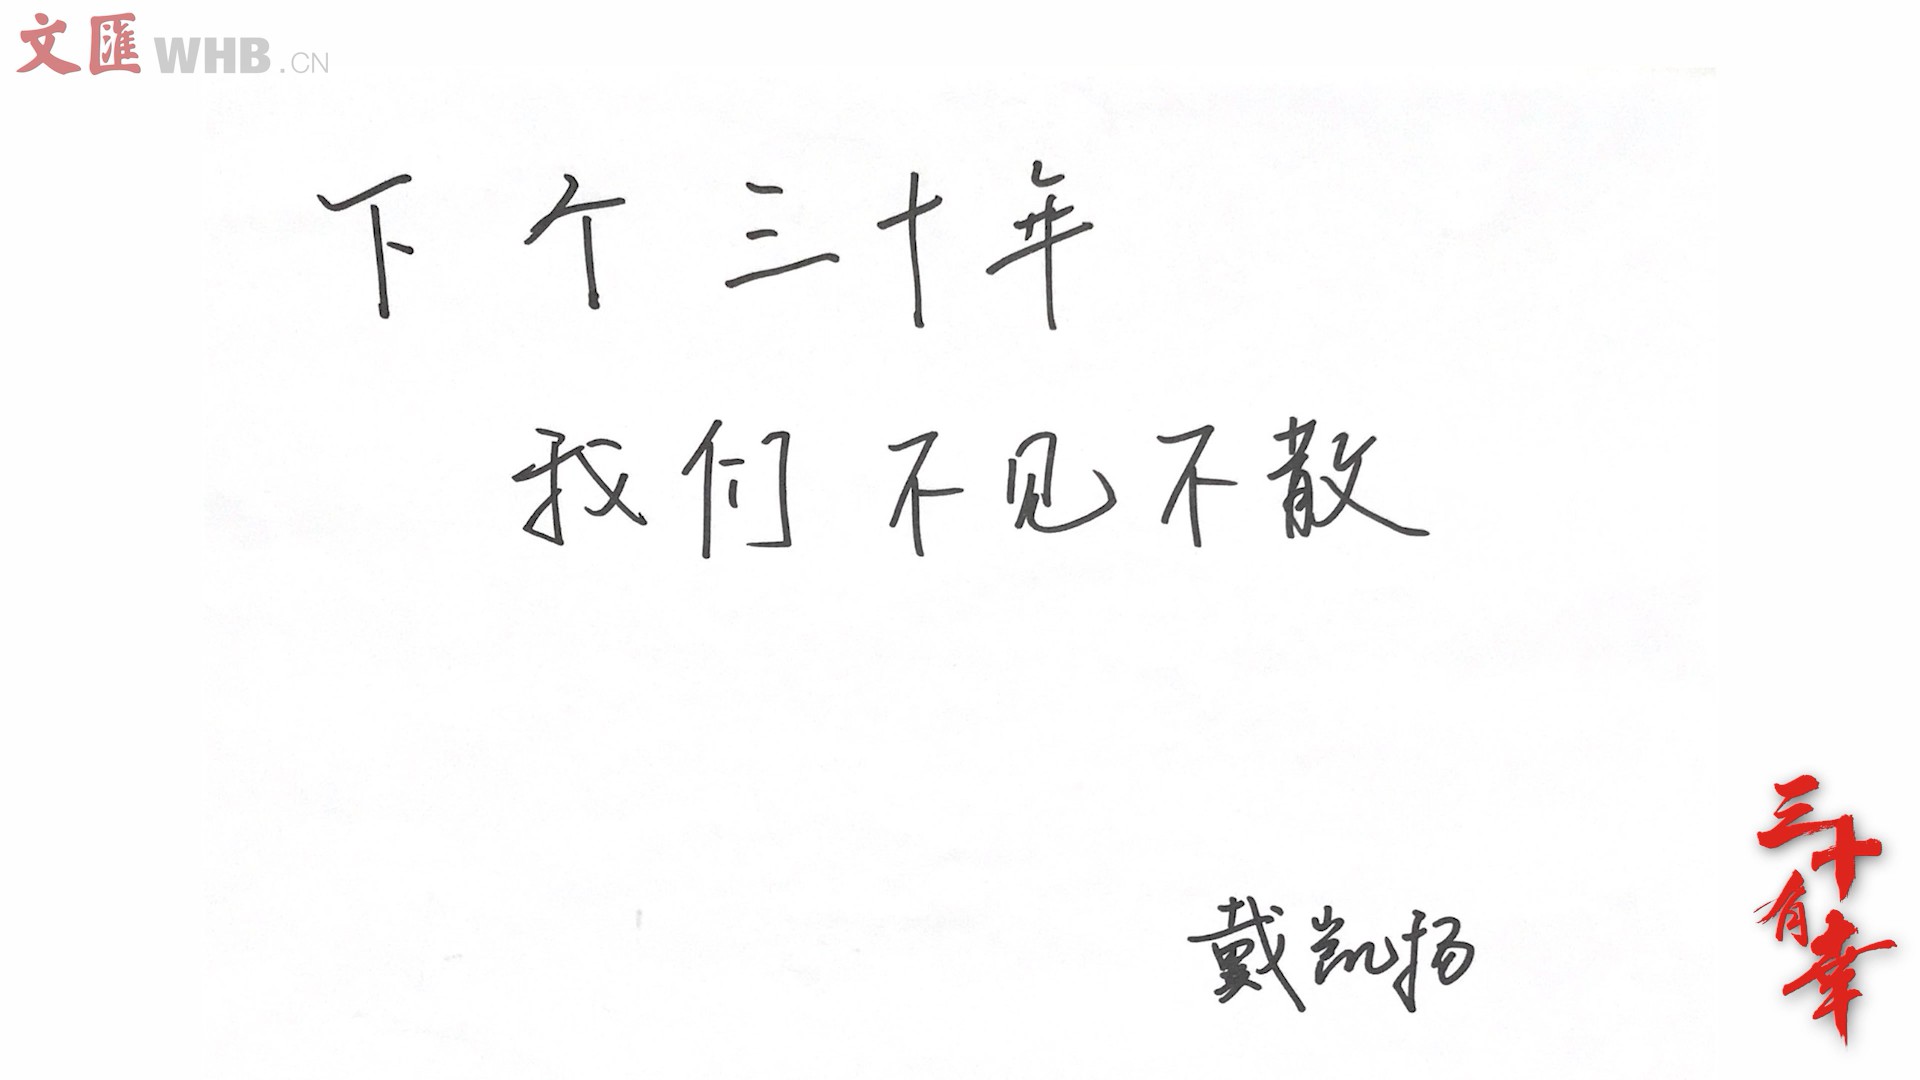 文匯 WHB.CN
下个三十年
我们不见不散
戴凯扬
三十
有幸